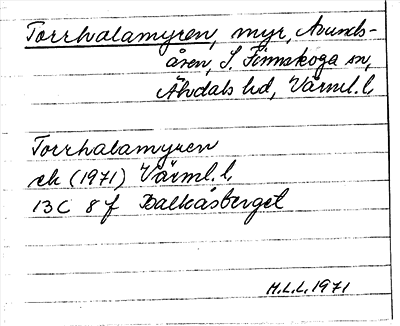 Torrhalamyren, myr, Avunds-
åsen, S. Finnskoga sn,
Älvdals hd, Värml. l.
Torrhalamyren
ek (1971) Värml. l.
13C 8f Balkåsberget
H.L.L. 1971